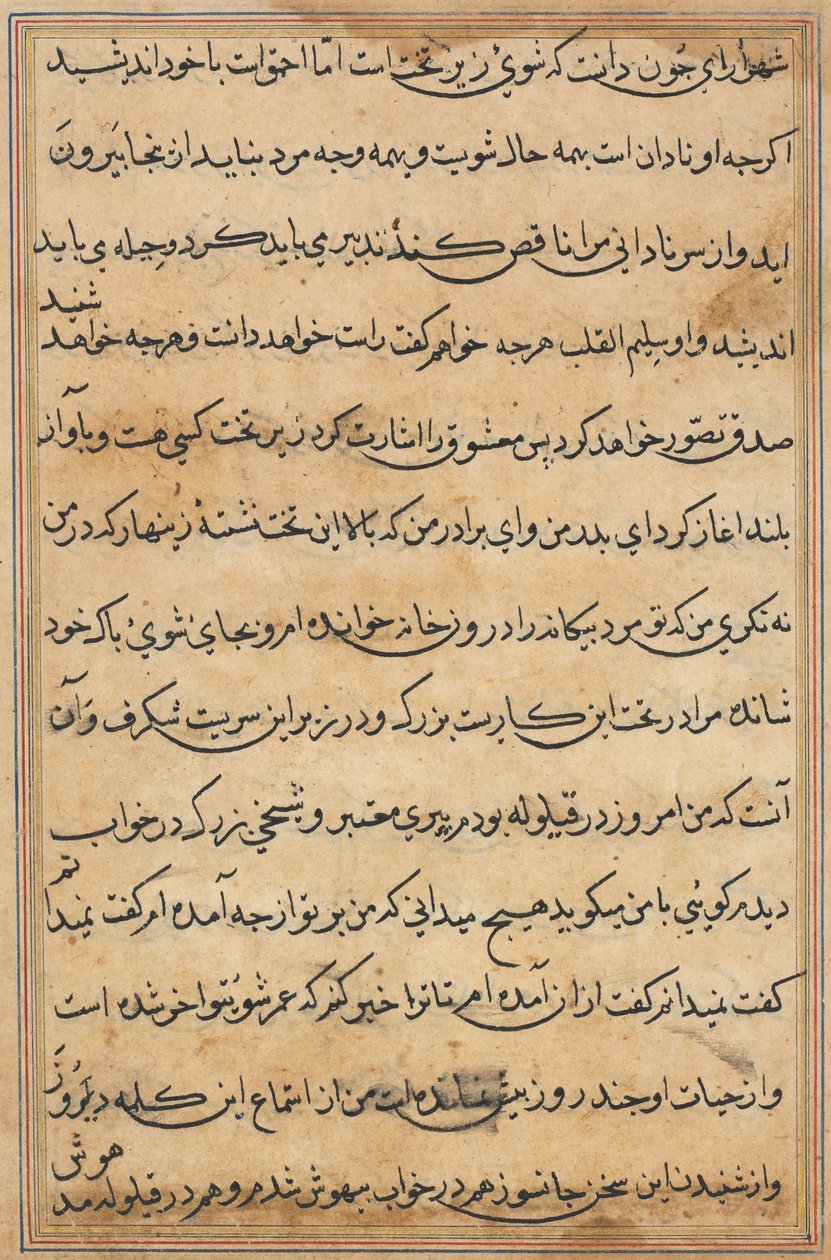 شهرارای جون دانست که شوئ زیر تخت است امّا احمق است با خود اندیشید
اکرجه او نادان است بهمه حال شویست و بهمه وجه مرد بناید از ینجا بیرون
اید و از سر نادانی مرا ناقص کند تدبیر می باید کرد و حیله می باید
اندیشید و او سلیم القلب هرجه خواهم کفت راست خواهد دانست و هرجه خواهد شنید
صدق تصّور خواهد کرد پس معشوق را اشارت کرد زیر تخت کسی هست و بآواز
بلند اغاز کرد ای بدر من و ای برادر من که بالا این تخت نشستۀ زینهار که در من
نه نکری من که تو مرد بیکانه را در وز خانه خوانده ام و بجای شوئ باک خود
شانده مرا در تخت این کاریست بزرک و در زیر این سریست شکرف و آن
آنست که من امروز در قیلوله بودم پیری معتبر و شیخی بزرک در خواب
دیدم کوئی با من میکوید هیچ میدانی که من بر تو از جه آمده ام کفت نمیدانم
کفت نمیدانم کفت از ان آمده ام تا ترا خبر کنم که عمر شوئتو اخر شده است
و از حیات او جند روز بیش نمانده است من از استماع این کلمه دلروز
و از شنیدن این سخن جانسوز هم در خواب بیهوش شدم و هم در قیلوله مد هوش